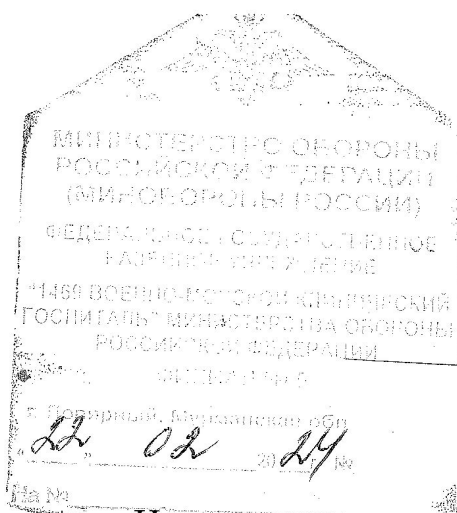 МИНИСТЕРСТВО ОБОРОНЫ
РОССИЙСКОЙ ФЕДЕРАЦИИ
(МИНОБОРОНЫ РОССИИ)
ФЕДЕРАЛЬНОЕ ГОСУДАРСТВЕННОЕ
КАЗЕННОЕ УЧРЕЖДЕНИЕ
"1469 ВОЕННО-МОРСКОЙ КЛИНИЧЕСКИЙ
ГОСПИТАЛЬ" МИНИСТЕРСТВА ОБОРОНЫ
РОССИЙСКОЙ ФЕДЕРАЦИИ
ФИЛИАЛ №
г. Мурманская обл
" 22 " 02 2024 г. №
На №